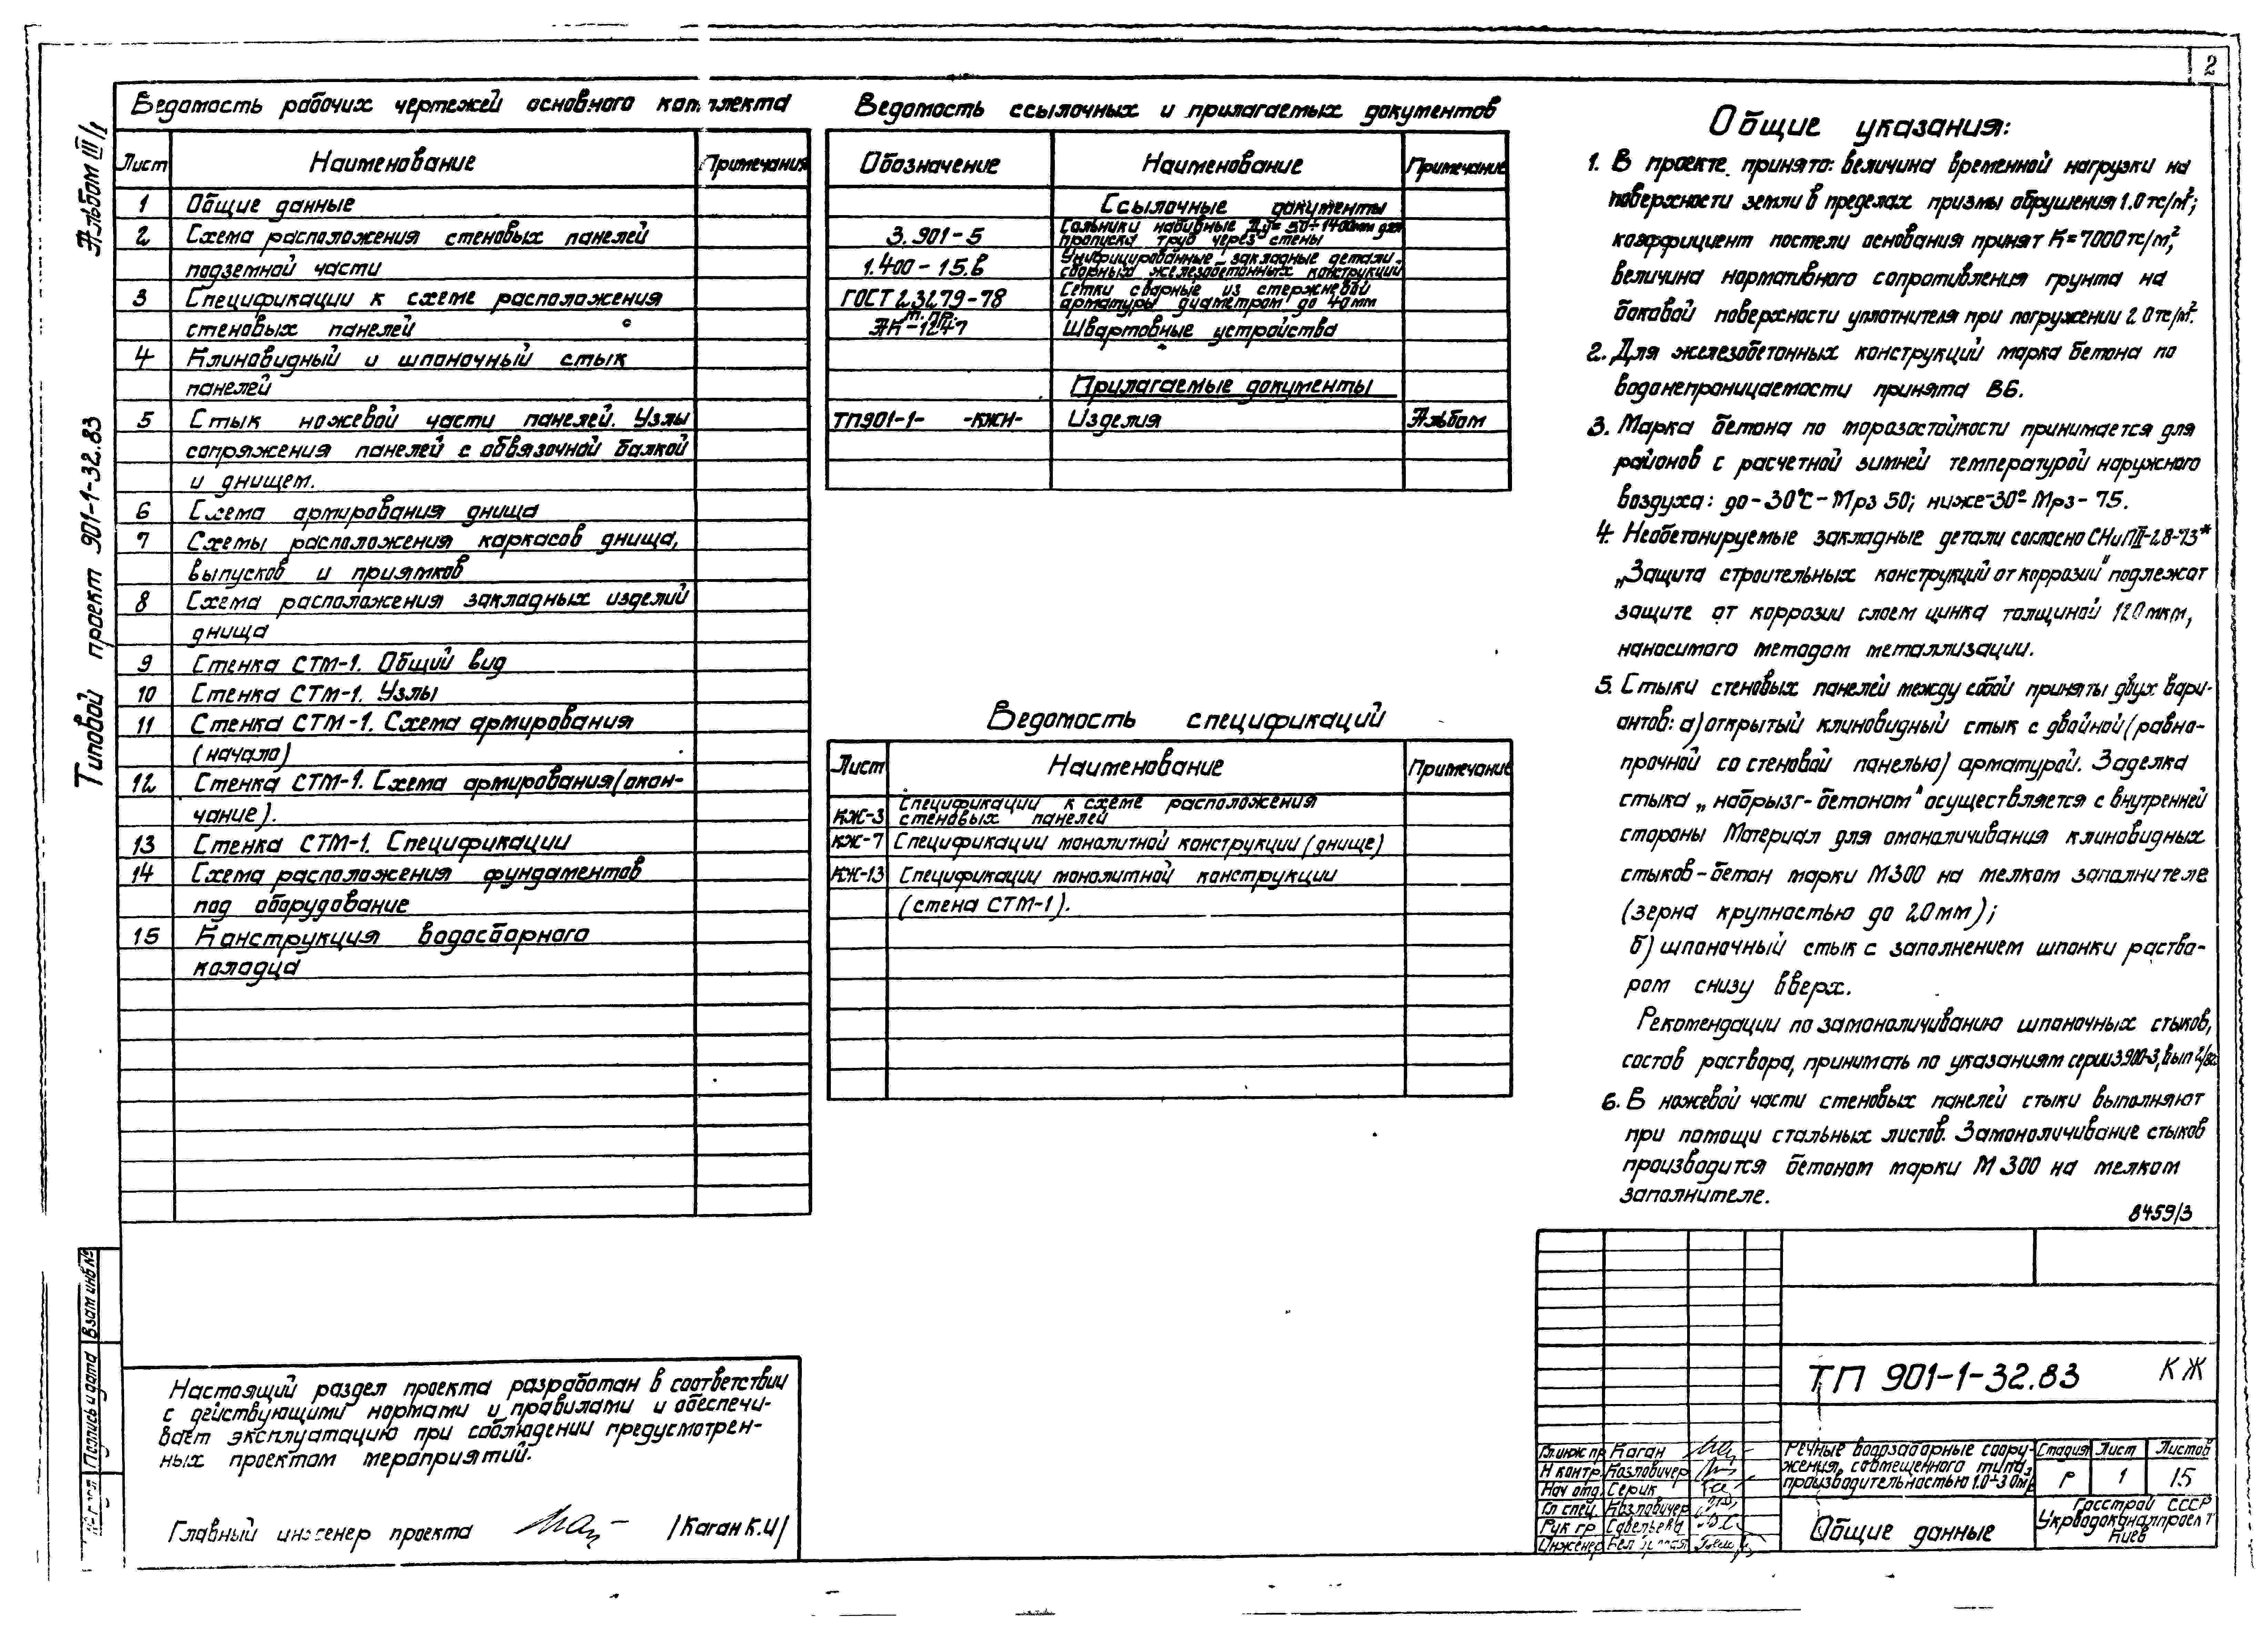 2
Альбом III/1
Типовой проект 901-1-32.83
Ведомость рабочих чертежей основного комплекта
Лист Наименование Примечания
1 Общие данные
2 Схема расположения стеновых панелей
подземной части
3 Спецификации к схеме расположения
стеновых панелей
4 Клиновидный и шпоночный стык
панелей
5 Стык ножевой части панелей. Узлы
сопряжения панелей с обвязочной балкой
и днищем.
6 Схема армирования днища
7 Схемы расположения каркасов днища,
выпусков и приямков
8 Схема расположения закладных изделий
днища
9 Стенка СТМ-1. Общий вид
10 Стенка СТМ-1. Узлы
11 Стенка СТМ-1. Схема армирования
(начало)
12 Стенка СТМ-1. Схема армирования (окон-
чание).
13 Стенка СТМ-1. Спецификации
14 Схема расположения фундаментов
под оборудование
15 Конструкция водосборного
колодца
Ведомость ссылочных и прилагаемых документов
Обозначение Наименование Примечание
Ссылочные документы
3.901-5 Сальники набивные Ду=50÷1400мм для
пропуска труб через стены
1.400-15.в Унифицированные закладные детали
сборных железобетонных конструкций
ГОСТ 23279-78 Сетки сварные из стержневой
арматуры диаметром до 40мм
т.пр.
-1247 Швартовные устройства
Прилагаемые документы
ТП901-1- -КЖИ- Изделия Альбом
Ведомость спецификаций
Лист Наименование Примечание
КЖ-3 Спецификации к схеме расположения
стеновых панелей
КЖ-7 Спецификации монолитной конструкции (днище)
КЖ-13 Спецификации монолитной конструкции
(стена СТМ-1).
Общие указания:
1. В проекте принято: величина временной нагрузки на
поверхности земли в пределах призмы обрушения 1.0 тс/м²;
коэффициент постели основания принят К=7000 тс/м²,
величина нормативного сопротивления грунта на
боковой поверхности уплотнителя при погружении 2.0 тс/м².
2. Для железобетонных конструкций марка бетона по
водонепроницаемости принята В6.
3. Марка бетона по морозостойкости принимается для
районов с расчетной зимней температурой наружного
воздуха: до-30°С-Мрз 50; ниже-30° Мрз-75.
4. Необетонируемые закладные детали согласно СНиП II-28-73*
„Защита строительных конструкций от коррозии" подлежат
защите от коррозии слоем цинка толщиной 120 мкм,
наносимого методом металлизации.
5. Стыки стеновых панелей между собой приняты двух вари-
антов: а) открытый клиновидный стык с двойной (равно-
прочной со стеновой панелью) арматурой. Заделка
стыка „набрызг-бетоном" осуществляется с внутренней
стороны Материал для омоноличивания клиновидных
стыков-бетон марки М300 на мелком заполнителе
(зерна крупностью до 20мм);
б) шпоночный стык с заполнением шпонки раство-
ром снизу вверх.
Рекомендации по замоноличиванию шпоночных стыков,
состав раствора, принимать по указаниям серии 3.900-3, вып 2/82
6. В ножевой части стеновых панелей стыки выполняют
при помощи стальных листов. Замоноличивание стыков
производится бетоном марки М 300 на мелком
заполнителе.
8459/3
Взам инв №
Подпись и дата
Настоящий раздел проекта разработан в соответствии
с действующими нормами и правилами и обеспечи-
вает эксплуатацию при соблюдении предусмотрен-
ных проектом мероприятий.
Главный инженер проекта /Каган К.И/
ТП 901-1-32.83 КЖ
Гл.инж.пр Каган
Н контр. Козловичер
Нач отд. Серик
Гл спец. Козловичер
Рук гр Савельева
Инженер
Речные водозаборные соору-
жения, совмещенного типа,
производительностью 1.0÷3.0м³/с
Стадия Лист Листов
Р 1 15
Общие данные
Госстрой СССР
Укрводоканалпроект
Киев